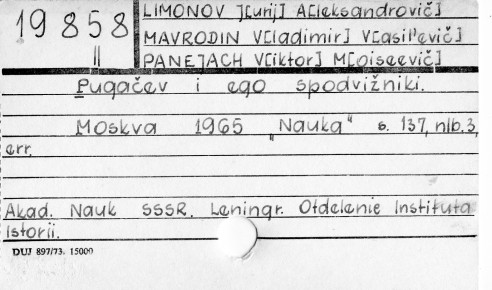 19 858
II
LIMONOV J[urij] A[leksandrovič]
MAVRODIN V[ladimir] V[asil'evič]
PANEJACH V[iktor] M[oiseevič]
Pugačev i ego spodvižniki.
Moskva 1965 „Nauka" s. 137, nlb. 3,
err.
Akad. Nauk SSSR. Leningr. Otdelenie Instituta
Istorii.
DUJ 897/73. 15000